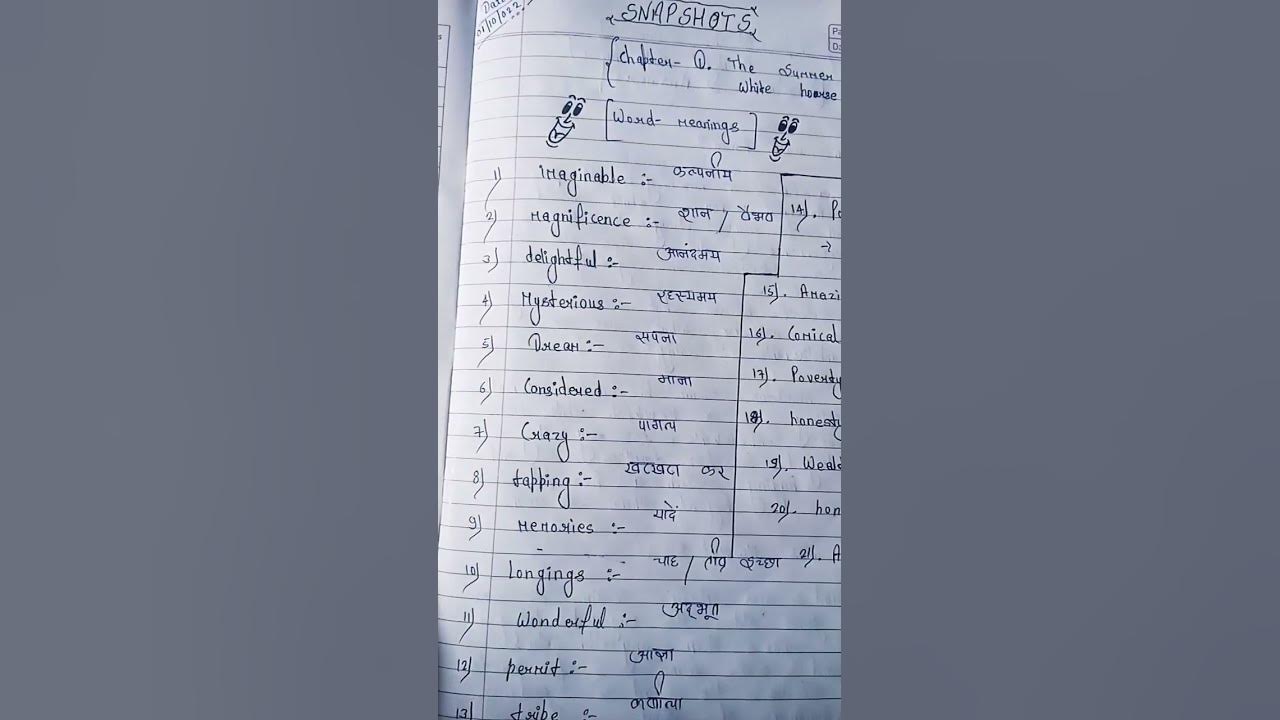 Dat
01/10/022
SNAPSHOTS
Chapter- ①. The Summer
White hourse
[Word- Meanings]
1) imaginable :- कल्पनीय
2) Magnificence :- शान / वैभव
3) delightful :- आनंदमय
4) Mysterious :- रहस्यमय
5) Dream :- सपना
6) Considered :- माना
7) Crazy :- पागल
8) tapping :- खटखटा कर
9) Memories :- यादें
10) Longings :- चाह / तीव्र इच्छा
11) Wonderful :- अदभूत
12) permit :- आज्ञा
13) tribe :-
14). Po
→
15). Amazi
16). Comical
17). Poverty
18). honesty
19). Weal
20). hon
21). A